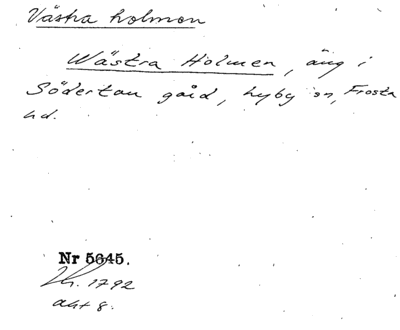 Västra holmen
Wästra Holmen, äng i
Södertou gård, Hyby sn, Frosta
hd.
Nr 5645.
Kh. 1792
akt 8.